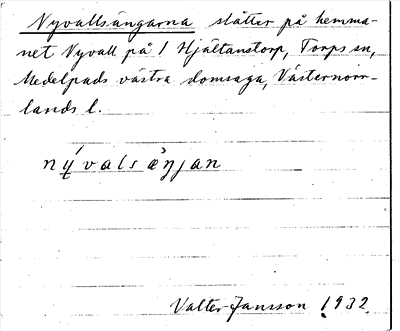 Nyvallsängarna slåtter på hemma-
net Nyvall på 1 Hjältanstorp, Torps sn,
Medelpads västra domsaga, Västernorr-
lands l.
nývalsæ̀ŋjan
Valter Jansson 1932.